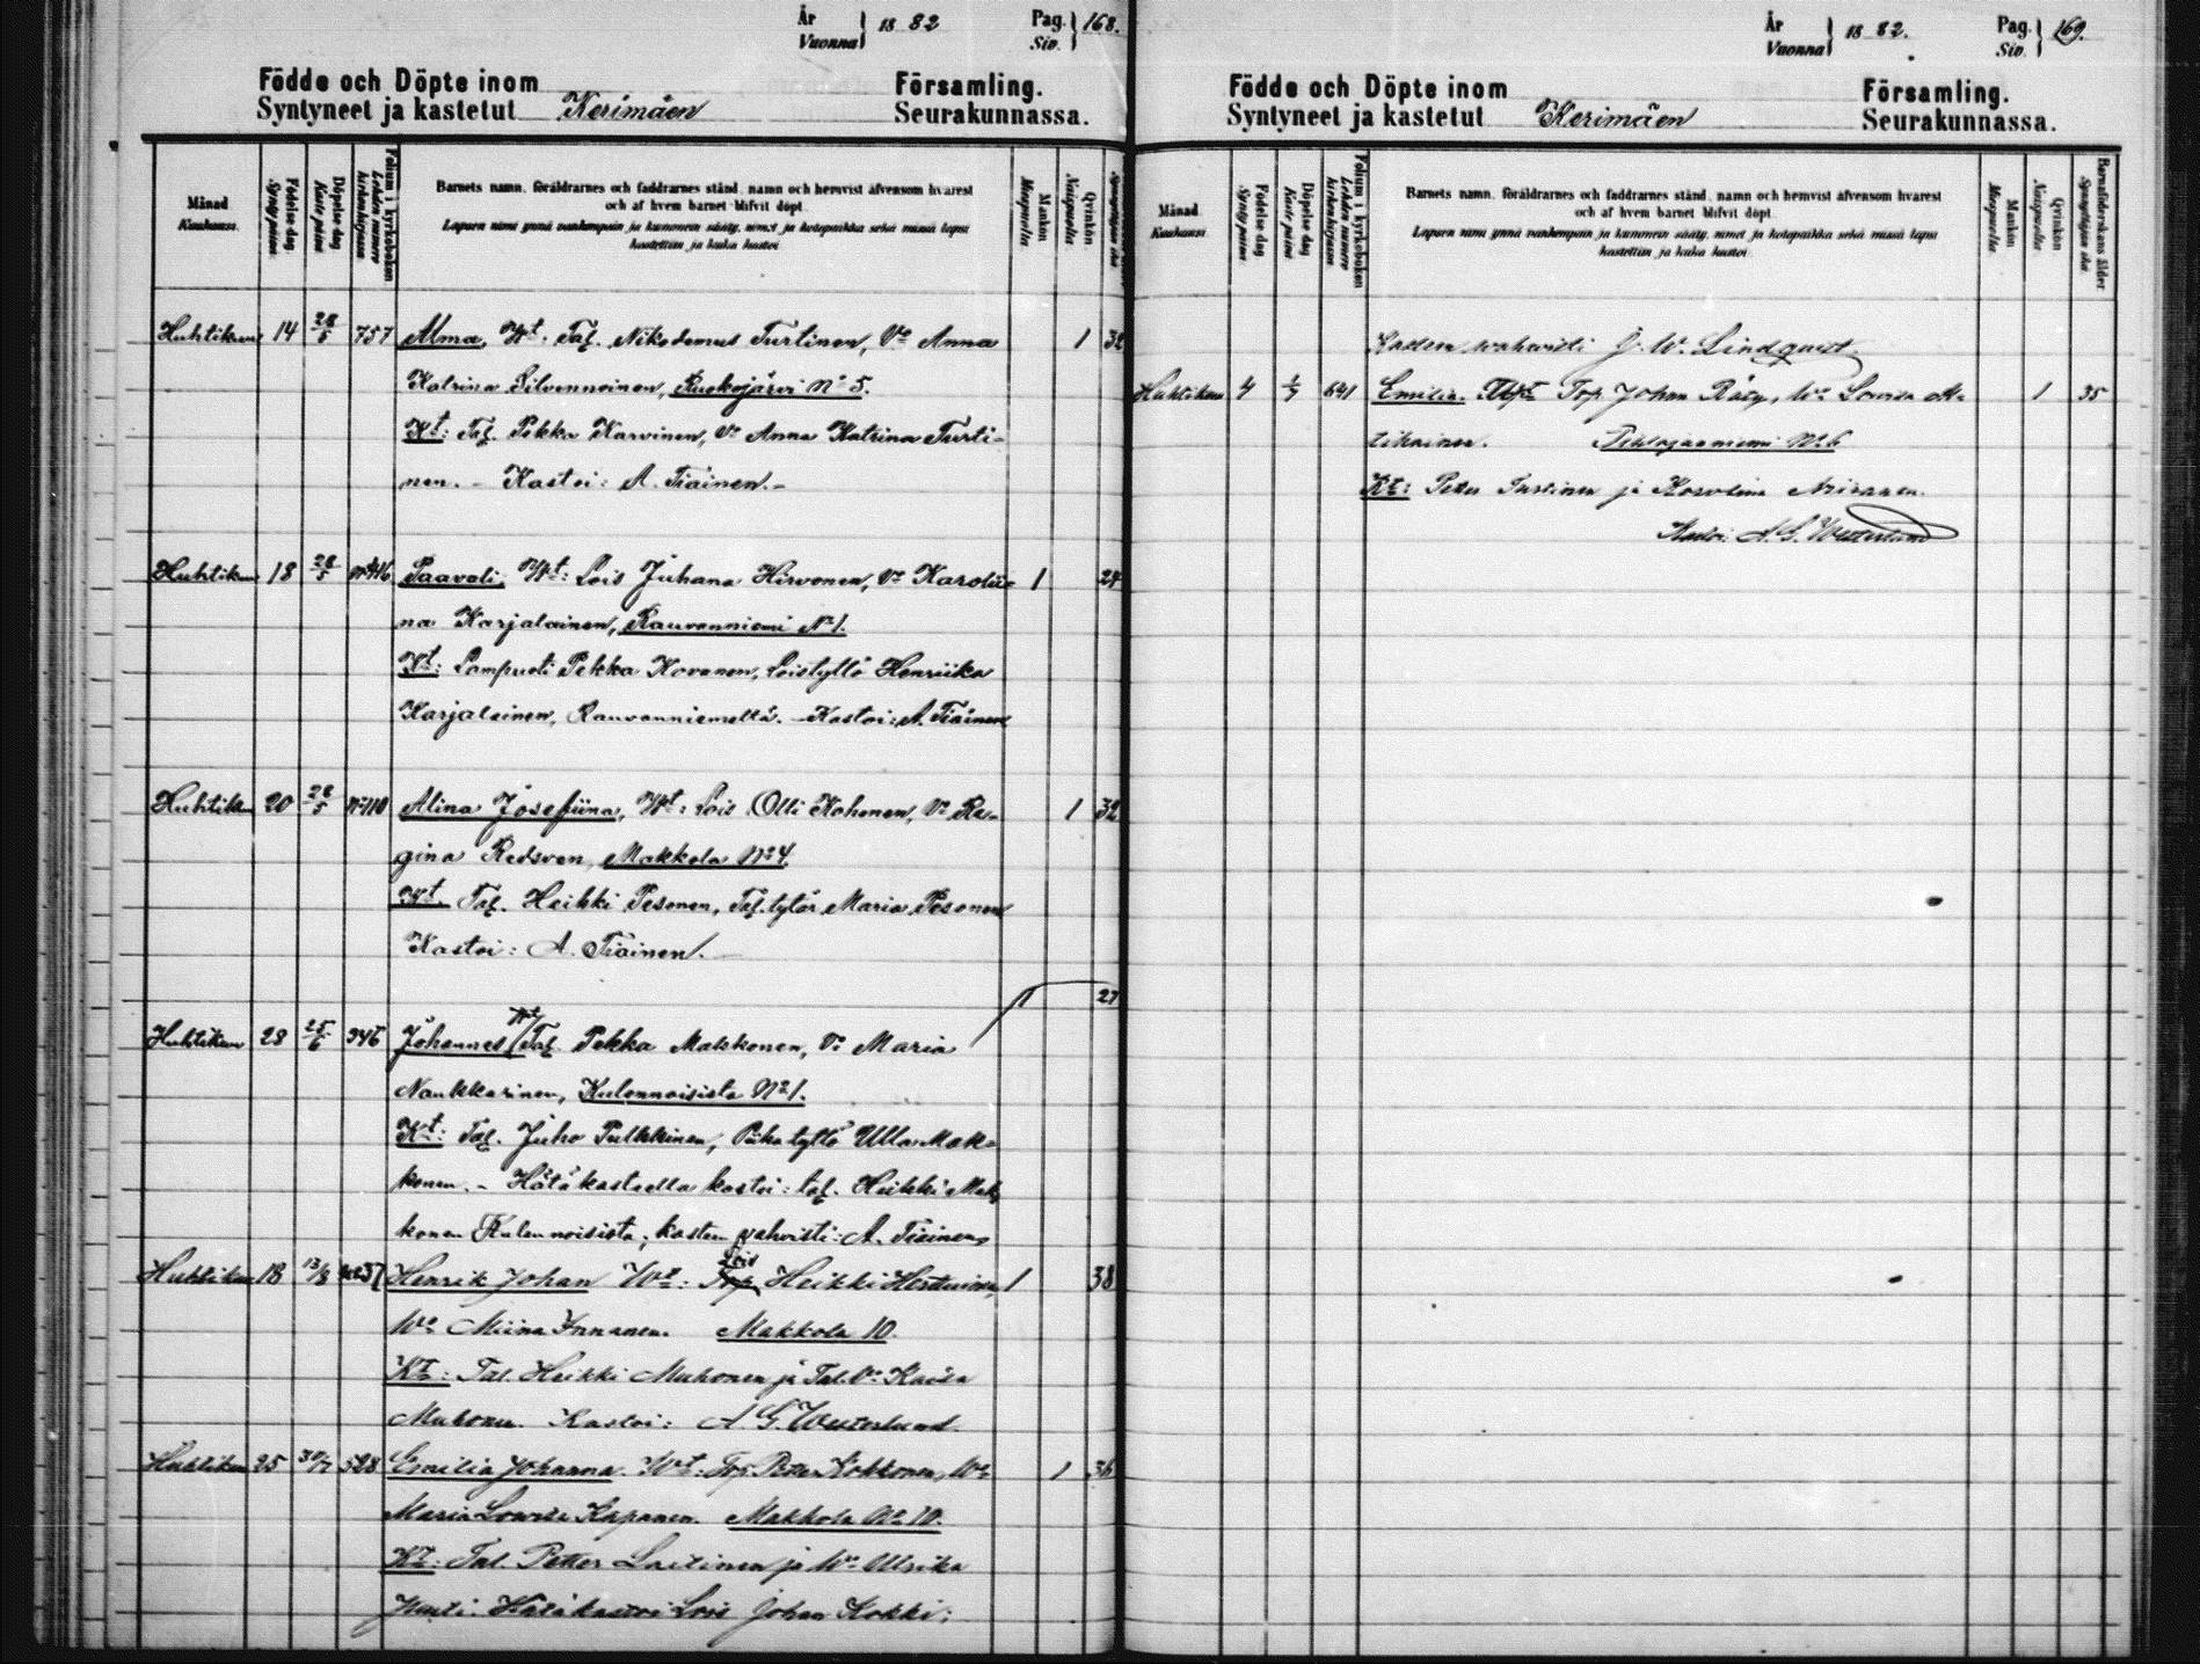 År
Vuonna } 1882
Pag.
Siv. } 168.
Födde och Döpte inom Församling.
Syntyneet ja kastetut Kerimäen Seurakunnassa.
Månad Kuukausi.
Födelse dag Synty päivä
Döpelse dag Kaste päivä
Folium i kyrkoboken Lehden numero kirkonkirjassa
Barnets namn, föräldrarnes och faddrarnes stånd, namn och hemvist äfvensom hvarest
och af hvem barnet blifvit döpt.
Lapsen nimi ynnä vanhempain ja kummein sääty, nimet ja kotopaikka sekä missä lapsi
kastettiin ja kuka kastoi
Mankön Miespuolia
Qvinkön Naispuolia
Huhtikuu 14 28/5 757 Alma, Wt: Tal. Nikodemus Turtinen, Vo Anna 1 32
Katrina Silvennoinen, Ruokojärvi No 5.
Kt: Tal. Pekka Karvinen, Vo Anna Katrina Turti-
nen. - Kastoi: A. Tiainen.-
Huhtikuu 18 28/5 Paavali, Wt: Lois Juhana Hirvonen, Vo Karolii- 1 24
na Karjalainen, Rauvanniemi No 1.
Kt: Lampuoti Pekka Kovanen, Loistyttö Henriika
Karjalainen, Rauvanniemeltä. - Kastoi: A. Tiainen
Huhtikuu 20 28/5 Alina Josefiina, Wt: Lois Olli Kohonen, Vo Re- 1 32
gina Redsven, Makkola No 4.
Kt. Tal. Heikki Pesonen, Tal. tytär Maria Pesonen
Kastoi: A. Tiainen.
Huhtikuu 28 25/6 346 Johannes Wt Tal. Pekka Makkonen, Vo Maria 1 27
Naukkarinen, Kulennoisista No 1.
Kt: Tal. Juho Pulkkinen, Piika tyttö Ulla Mak-
konen. - Hätäkasteella kastoi: tal. Heikki Mak-
konen Kulennoisista, kasteen vahvisti: A. Tiainen
Huhtikuu 18 13/8 Henrik Johan Wt: Lois Heikki 1 38
Wo Miina Innanen. Makkola 10.
Kt: Tal. Heikki Muhonen ja Tal. Vo Kaisa
Muhonen. Kastoi: A. G. Westerlund.
Huhtikuu 25 30/7 528 Emilia Johanna. Wt: Top. Petter Kokkonen, Wo 1 36
Maria Lowisa Kapanen. Makkola No 10.
Kt: Tal. Petter Laitinen ja Wo Ulrika
Hätäkastoi Lois Johan Kokki;
År
Vuonna } 1882.
Pag.
Siv. } 169.
Födde och Döpte inom Församling.
Syntyneet ja kastetut Kerimäen Seurakunnassa.
Månad Kuukausi
Födelse dag Synty päivä
Döpelse dag Kaste päivä
Folium i kyrkoboken Lehden numero kirkonkirjassa
Barnets namn, föräldrarnes och faddrarnes stånd, namn och hemvist äfvensom hvarest
och af hvem barnet blifvit döpt.
Lapsen nimi ynnä vanhempain ja kummein sääty, nimet ja kotopaikka sekä missä lapsi
kastettiin ja kuka kastoi.
Mankön Miespuolia
Qvinkön Naispuolia
Barnaföderskans ålder Synnyttäjän ikä
Kasteen wahwisti J. W. Lindquist
Huhtikuu 4 641 Emilia. Top. Johan Räty, Wo Lowisa 1 35
No 6
Kt: Petter Turtinen ja Karolina
Kastoi A. G. Westerlund